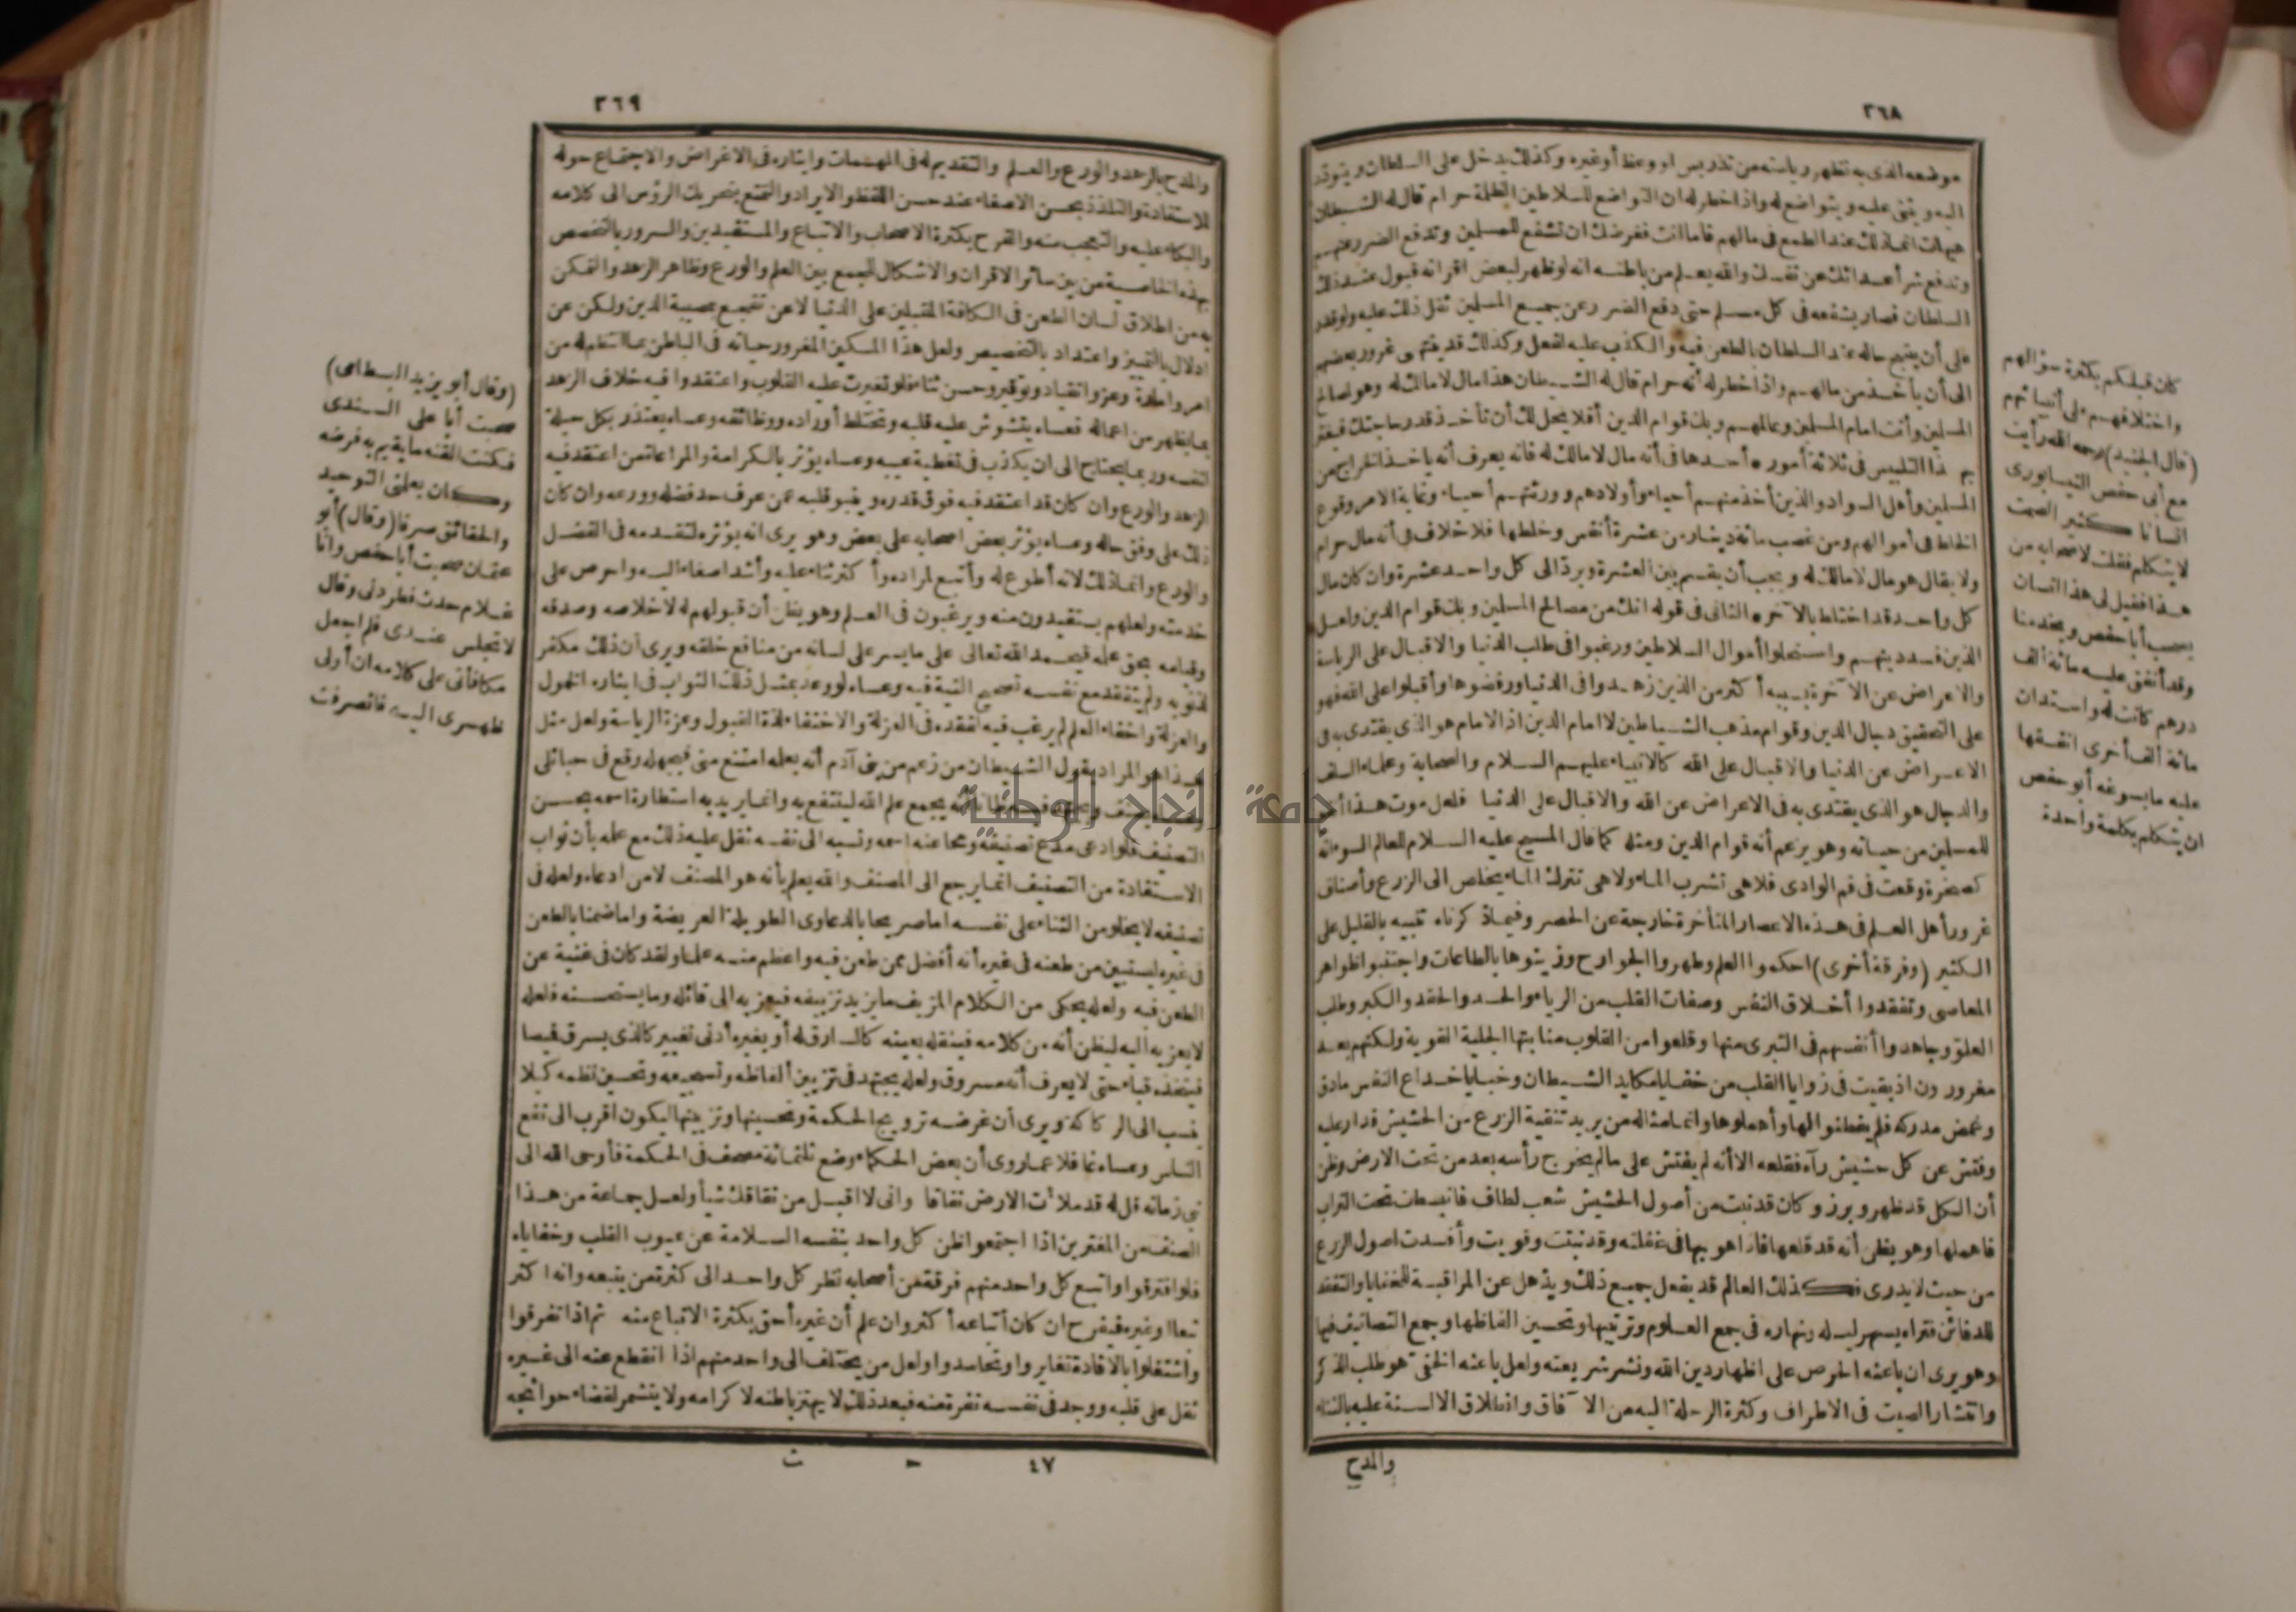 ٢٦٨
موضعه الذى به تظهر رياسته من تدريس او وعظ أو غيره وكذلك يدخل على السلطان ويتودد
اليه ويثنى عليه ويتواضع له واذا خطر له ان التواضع للسلاطين الظلمة حرام قال له الشيطان
هيهات انما ذلك عند الطمع فى مالهم فاما انت فغرضك ان تشفع للمسلمين وتدفع الضرر عنهم
وتدفع شر أعدائك عن نفسك والله يعلم من باطنه انه لو ظهر لبعض اقرانه قبول عند ذلك
السلطان فصار يشفعه فى كل مسلم حتى دفع الضرر عن جميع المسلمين ثقل ذلك عليه ولو قدر
على أن يقبح حاله عند السلطان بالطعن فيه والكذب عليه لفعل وكذلك قد ينتهى غرور بعضهم
الى أن يأخذ من مالهم واذا خطر له أنه حرام قال له الشيطان هذا مال لا مالك له وهو لمصالح
المسلمين وأنت امام المسلمين وعالمهم وبك قوام الدين أفلا يحل لك أن تأخذ قدر حاجتك فيغتر
بهذا التلبيس فى ثلاثة أمور * أحدها فى أنه مال لا مالك له فانه يعرف أنه يأخذ الخراج من
المسلمين وأهل السواد والذين أخذ منهم أحياء وأولادهم وورثتهم أحياء وغاية الامر وقوع
الخلط فى أموالهم ومن غصب مائة دينار من عشرة أنفس وخلطها فلا خلاف فى أنه مال حرام
ولا يقال هو مال لا مالك له ويجب أن يقسم بين العشرة ويرد الى كل واحد عشرة وان كان مال
كل واحد قد اختلط بالآخر * الثانى فى قوله انك من مصالح المسلمين وبك قوام الدين ولعل
الذين فسد دينهم واستحلوا أموال السلاطين ورغبوا فى طلب الدنيا والاقبال على الرياسة
والاعراض عن الآخرة بسببه أكثر من الذين زهدوا فى الدنيا ورفضوها وأقبلوا على الله فهو
على التحقيق دجال الدين وقوام مذهب الشياطين لا امام الدين اذ الامام هو الذى يقتدى به فى
الاعراض عن الدنيا والاقبال على الله كالانبياء عليهم السلام والصحابة وعلماء السلف
والدجال هو الذى يقتدى به فى الاعراض عن الله والاقبال على الدنيا فلعل موت هذا أنفع
للمسلمين من حياته وهو يزعم أنه قوام الدين ومثله كما قال المسيح عليه السلام للعالم السوء انه
كصخرة وقعت فى فم الوادى فلا هى تشرب الماء ولا هى تترك الماء يخلص الى الزرع وأصناف
غرور أهل العلم فى هذه الاعصار المتأخرة خارجة عن الحصر وفيما ذكرناه تنبيه بالقليل على
الكثير (وفرقة أخرى) احكموا العلم وطهروا الجوارح وزينوها بالطاعات واجتنبوا ظواهر
المعاصى وتفقدوا أخلاق النفس وصفات القلب من الرياء والحسد والحقد والكبر وطلب
العلو وجاهدوا أنفسهم فى التبرى منها وقلعوا من القلوب منابتها الجلية القوية ولكنهم بعد
مغرورون اذ بقيت فى زوايا القلب من خفايا مكايد الشيطان وخبايا خداع النفس ما دق
وغمض مدركه فلم يفطنوا لها وأهملوها وانما مثاله من يريد تنقية الزرع من الحشيش فدار عليه
وفتش عن كل حشيش رآه فقلعه الا أنه لم يفتش على ما لم يخرج رأسه بعد من تحت الارض وظن
أن الكل قد ظهر وبرز وكان قد نبت من أصول الحشيش شعب لطاف فانبسطت تحت التراب
فاهملها وهو يظن أنه قد قلعها فاذا هو بها فى غفلته وقد نبتت وقويت وأفسدت اصول الزرع
من حيث لا يدرى فكذلك العالم قد يفعل جميع ذلك ويذهل عن المراقبة للخفايا والتفقد
للدفائن فتراه يسهر ليله ونهاره فى جمع العلوم وترتيبها وتحسين الفاظها وجمع التصانيف فيها
وهو يرى ان باعثه الحرص على اظهار دين الله ونشر شريعته ولعل باعثه الخفى هو طلب الذكر
وانتشار الصيت فى الاطراف وكثرة الرحلة اليه من الآفاق وانطلاق الالسنة عليه بالثناء
والمدح
كان قبلكم بكثرة سؤالهم
واختلافهم على أنبيائهم
(قال الجنيد) رحمه الله رأيت
مع أبى حفص النيسابورى
انسانا كثير الصمت
لا يتكلم فقلت لاصحابه من
هذا فقيل لى هذا انسان
يصحب أبا حفص ويخدمنا
وقد أنفق عليه مائة ألف
درهم كانت له واستدان
مائة ألف أخرى انفقها
عليه ما يسوغه أبو حفص
ان يتكلم بكلمة واحدة
٢٦٩
والمدح بالزهد والورع والعلم والتقديم له فى المهمات وايثاره فى الاغراض والاجتماع حوله
للاستفادة والتلذذ بحسن الاصغاء عند حسن اللفظ والايراد والتمتع بتحريك الرؤس الى كلامه
والبكاء عليه والتعجب منه والفرح بكثرة الاصحاب والاتباع والمستفيدين والسرور بالتخصص
بهذه الخاصية من بين سائر الاقران والاشكال للجمع بين العلم والورع وظاهر الزهد والتمكن
به من اطلاق لسان الطعن فى الكافة المقبلين على الدنيا لا عن تفجع بمصيبة الدين ولكن عن
ادلال بالتمييز واعتداد بالتخصيص ولعل هذا المسكين المغرور حياته فى الباطن بما انتظم له من
امر وامارة وعز وانقياد وتوقير وحسن ثناء فلو تغيرت عليه القلوب واعتقدوا فيه خلاف الزهد
بما يظهر من اعماله فعساه يتشوش عليه قلبه وتختلط أوراده ووظائفه وعساه يعتذر بكل حيلة
لنفسه وربما يحتاج الى ان يكذب فى تغطية عيبه وعساه يؤثر بالكرامة والمراعاة من اعتقد فيه
الزهد والورع وان كان قد اعتقد فيه فوق قدره وينبو قلبه عمن عرف حد فضله وورعه وان كان
ذلك على وفق حاله وعساه يؤثر بعض اصحابه على بعض وهو يرى انه يؤثره لتقدمه فى الفضل
والورع وانما ذلك لانه أطوع له وأتبع لمراده وأكثر ثناء عليه وأشد اصغاء اليه واحرص على
خدمته ولعلهم يستفيدون منه ويرغبون فى العلم وهو يظن أن قبولهم له لاخلاصه وصدقه
وقيامه بحق علمه فيحمد الله تعالى على ما يسر على لسانه من منافع خلقه ويرى أن ذلك مكفر
لذنوبه ولم يتفقد مع نفسه تصحيح النية فيه وعساه لو وعد بمثل ذلك الثواب فى ايثاره الخمول
والعزلة واخفاء العلم لم يرغب فيه لفقده فى العزلة والاختفاء لذة القبول وعزة الرياسة ولعل مثل
هذا هو المراد بقول الشيطان من زعم من بنى آدم أنه بعلمه امتنع منى فبجهله وقع فى حبائلى
التصنيف فلو ادعى مدع تصنيفه ومحا عنه اسمه ونسبه الى نفسه ثقل عليه ذلك مع علمه بأن ثواب
الاستفادة من التصنيف انما يرجع الى المصنف والله يعلم بأنه هو المصنف لا من ادعاه ولعله فى
تصنيفه لا يخلو من الثناء على نفسه اما صريحا بالدعاوى الطويلة العريضة واما ضمنا بالطعن
فى غيره ليستبين من طعنه فى غيره أنه أفضل ممن طعن فيه واعظم منه علما ولقد كان فى غنية عن
الطعن فيه ولعله يحكى من الكلام المزيف ما يزيد تزييفه فيعزيه الى قائله وما يستحسنه فلعله
لا يعزيه اليه ليظن أنه من كلامه فينقله بعينه كالسارق له أو يغيره أدنى تغيير كالذى يسرق قميصا
فيتخذه قباء حتى لا يعرف أنه مسروق ولعله يجتهد فى تزيين ألفاظه وتسجيعه وتحسين نظمه كيلا
ينسب الى الركاكة ويرى أن غرضه ترويج الحكمة وتحسينها وتزيينها ليكون اقرب الى نفع
الناس وعساه غافلا عما روى أن بعض الحكماء وضع ثلثمائة مصحف فى الحكمة فأوحى الله الى
نبى زمانه قل له قد ملأت الارض نفاقا وانى لا اقبل من نفاقك شيأ ولعل جماعة من هذا
الصنف من المغترين اذا اجتمعوا ظن كل واحد بنفسه السلامة عن عيوب القلب وخفاياه
فلو افترقوا واتبع كل واحد منهم فرقة من أصحابه نظر كل واحد الى كثرة من يتبعه وانه اكثر
تبعا او غيره فيفرح ان كان أتباعه أكثر وان علم أن غيره أحق بكثرة الاتباع منه ثم اذا تفرقوا
واشتغلوا بالافادة تغايروا وتحاسدوا ولعل من يختلف الى واحد منهم اذا انقطع عنه الى غيره
ثقل على قلبه ووجد فى نفسه نفرة منه فبعد ذلك لا يهتز باطنه لاكرامه ولا يتشمر لقضاء حوائجه
٤٧
ت
(وقال أبو يزيد البسطامى)
صحبت أبا على السندى
فكنت ألقنه ما يقيم به فرضه
وكان يعلمنى التوحيد
والحقائق صرفا (وقال) أبو
عثمان صحبت أبا حفص وانا
غلام حدث فطردنى وقال
لا تجلس عندى فلم اجعل
مكافأتى على كلامه ان أولى
ظهرى اليه فانصرفت
جامعة النجاح الوطنية